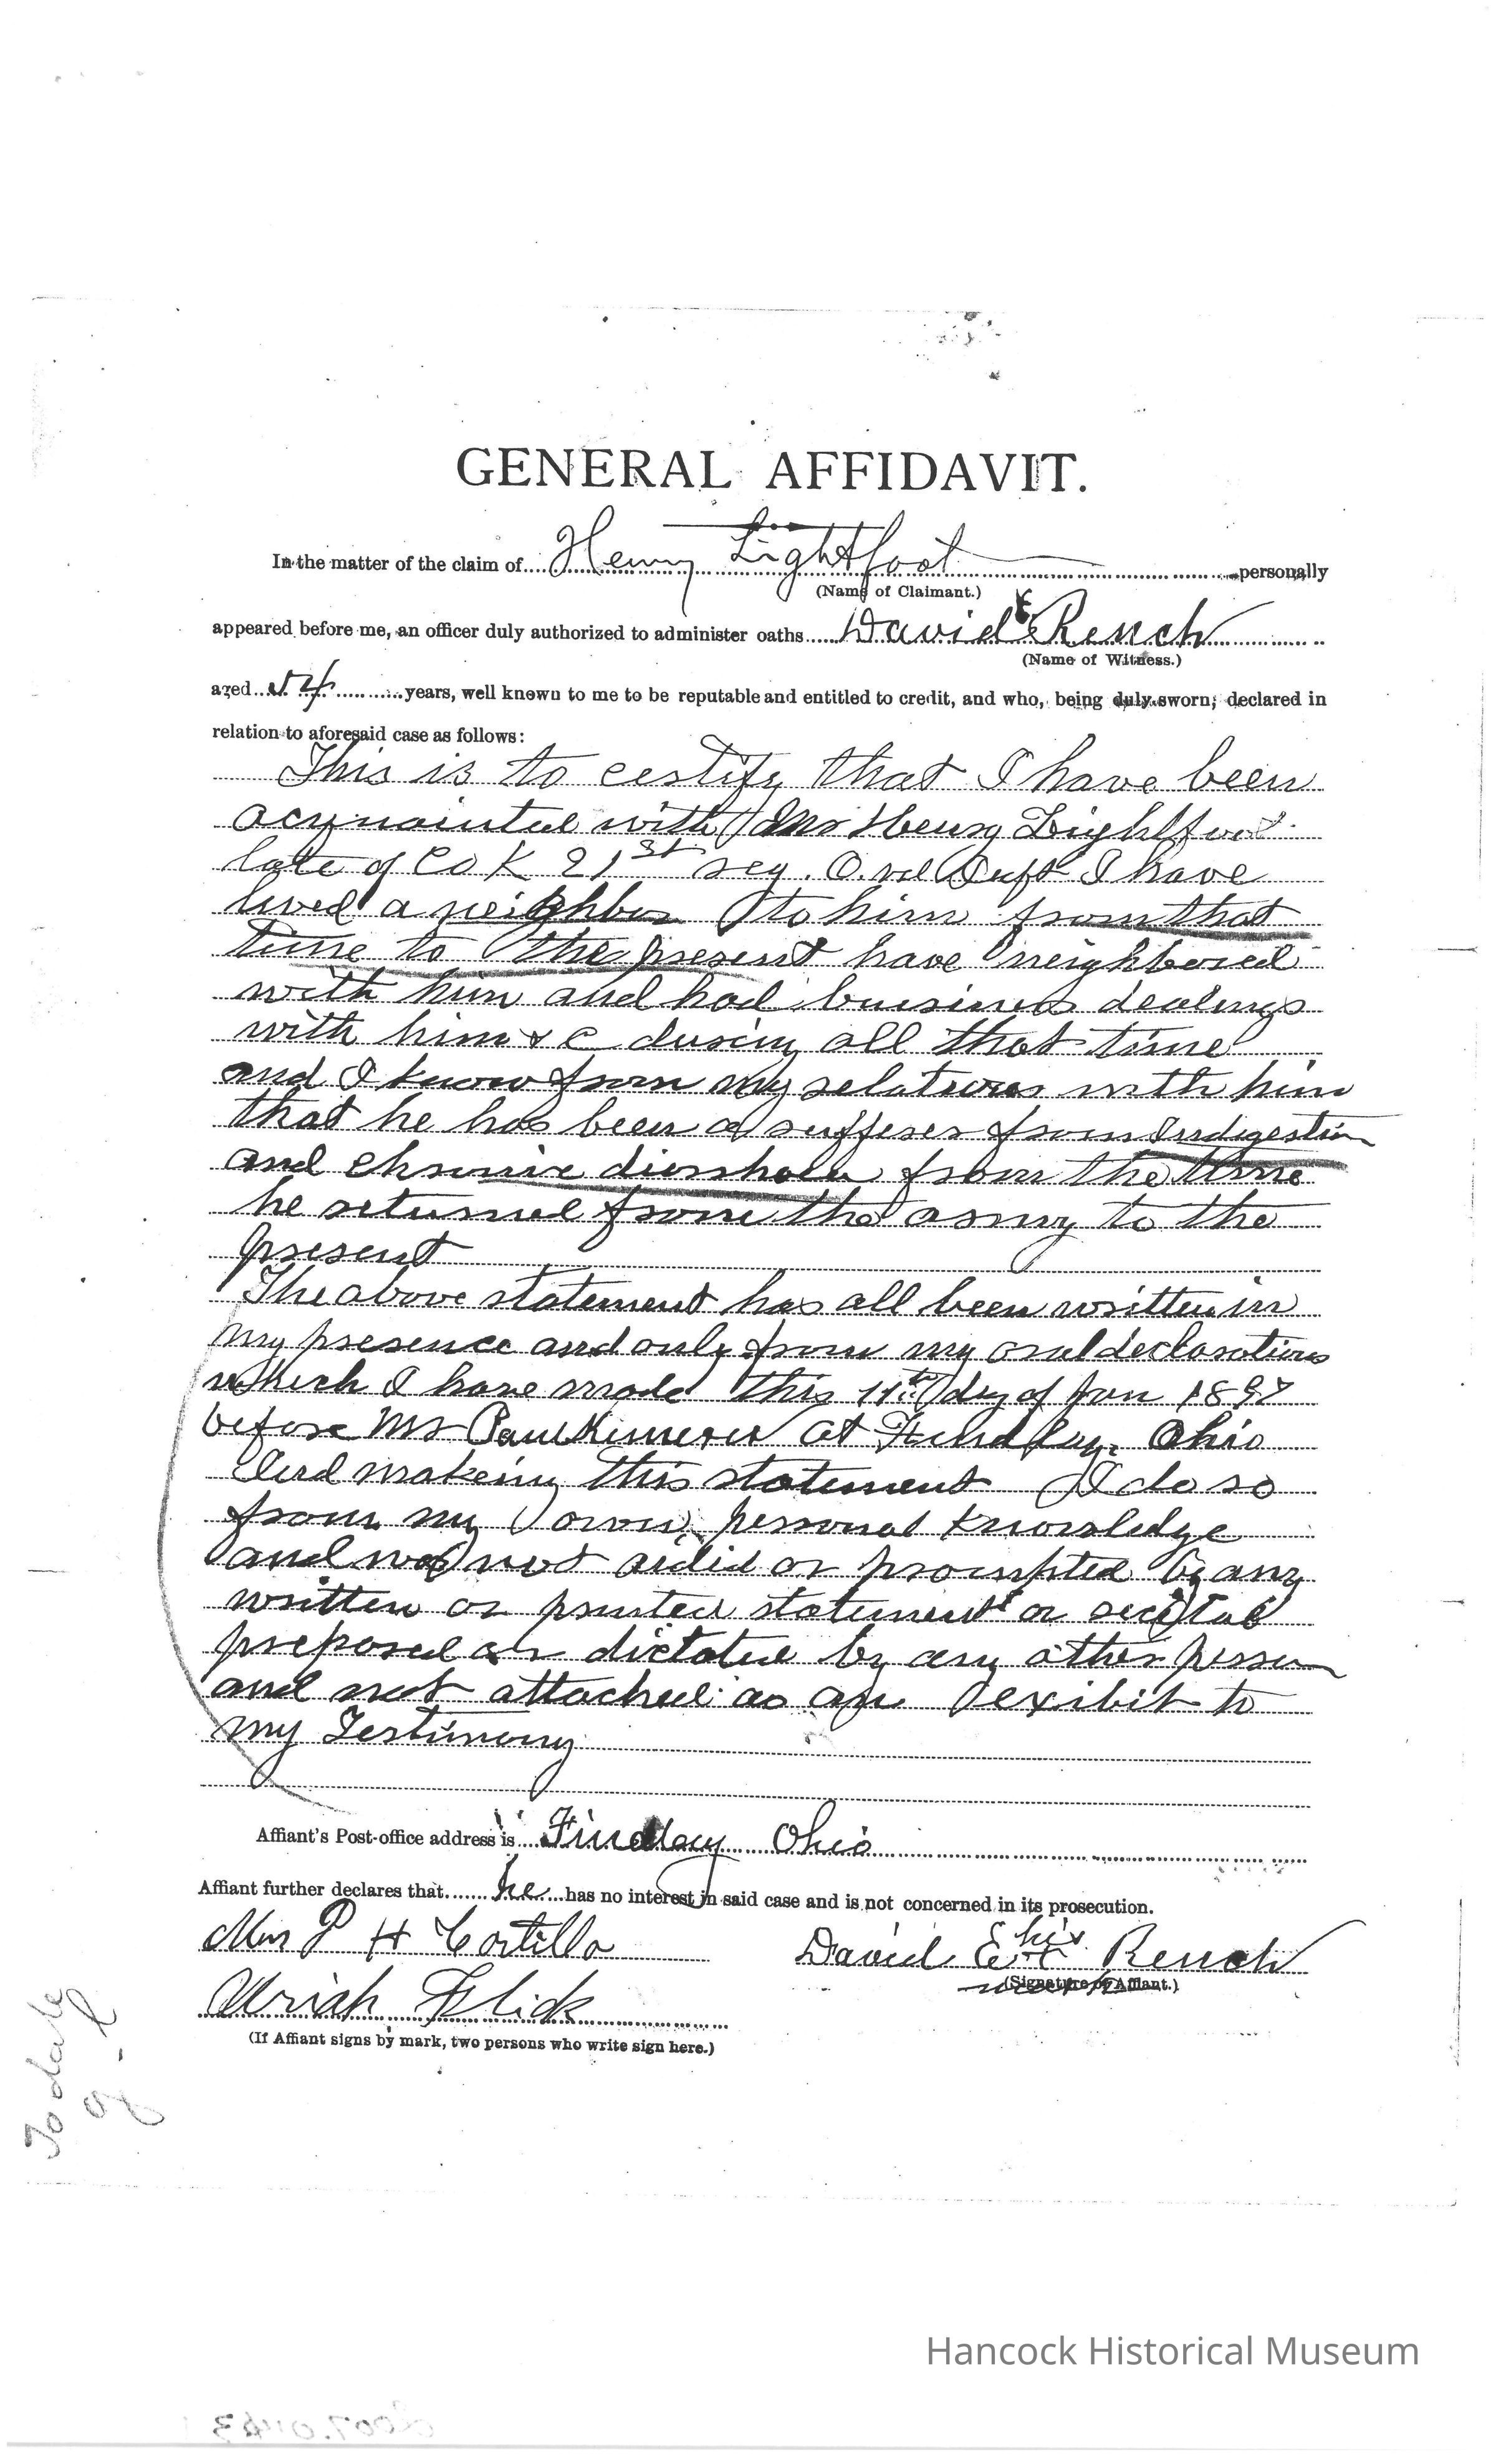 GENERAL AFFIDAVIT.
In the matter of the claim of Henry Lightfoot personally
(Name of Claimant.)
appeared before me, an officer duly authorized to administer oaths David E Rench
(Name of Witness.)
aged 54 years, well known to me to be reputable and entitled to credit, and who, being duly sworn, declared in
relation to aforesaid case as follows:
This is to certify that I have been
acquainted with Mr Henry Lightfoot
late of Co K 21st reg. O. vol I have
lived a neighbor to him from that
time to the present have neighbored
with him and had buisiness dealings
with him & c during all that time
and I know from my relations with him
that he has been a sufferer from Indigestion
and chronic diorrhoea from the time
he returned from the army to the
present
The above statement has all been written in
my presence and only from my oral declarations
which I have made this 11th day of Jan 1897
before Mr Paul Kimerer at Findlay, Ohio
And making this statement I do so
from my own personal knowledge
and was not aided or prompted by any
written or printed statement or recital
prepared or dictated by any other person
and not attached as an exibit to
my Testimony
Affiant's Post-office address is Findlay Ohio
Affiant further declares that he has no interest in said case and is not concerned in its prosecution.
Mrs P H Cortilla
his
David E + Rench
mark
(Signature of Affiant.)
Uriah Flick
(If Affiant signs by mark, two persons who write sign here.)
To date
Hancock Historical Museum